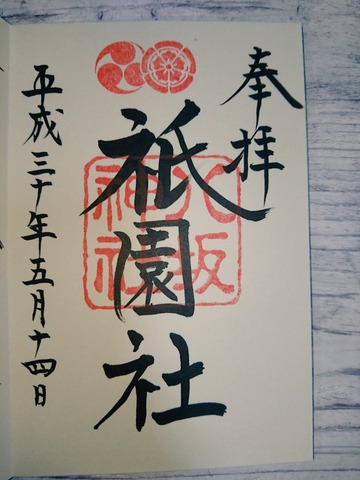 奉拝
祇園社
八坂
神社
平成三十年五月十四日